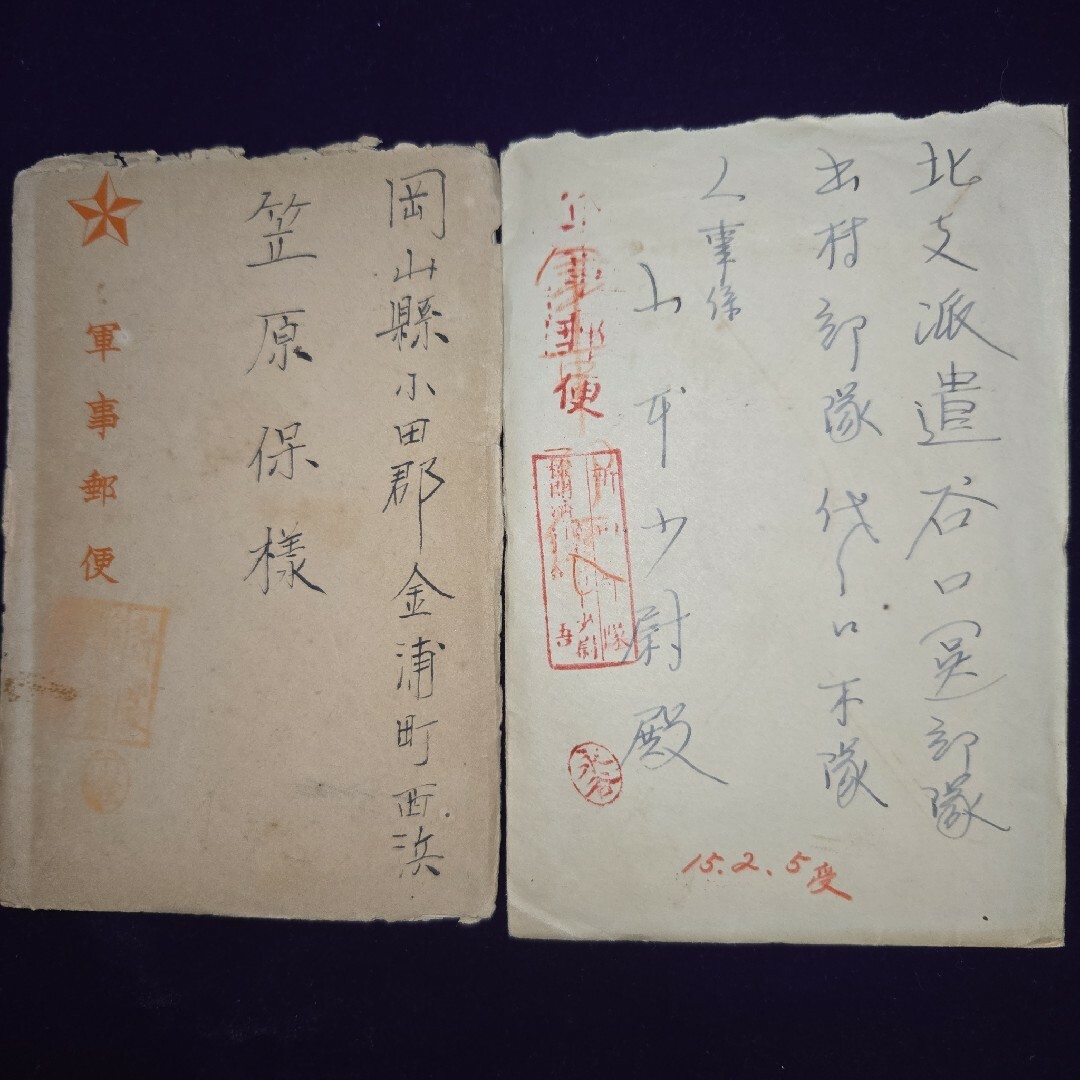 岡山縣小田郡金浦町西浜
笠原保様
軍事郵便
北支派遣谷口冥部隊
出村部隊代々口本隊
人事係
山本少尉殿
軍事郵便
検閲済
少尉
隊
永谷
15.2.5受